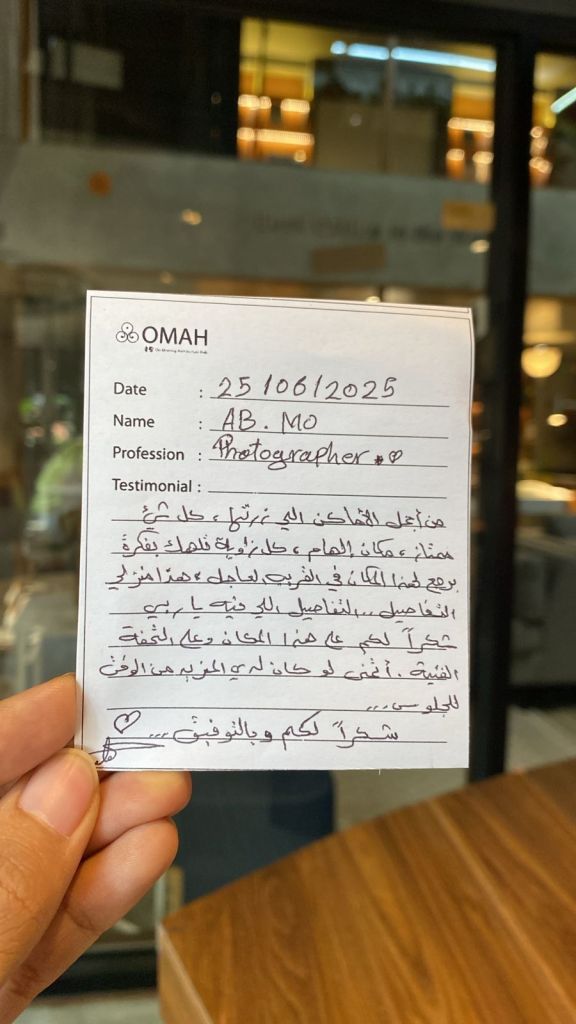 OMAH
Date : 25/06/2025
Name : AB. MO
Profession : Photographer
Testimonial :
من أجمل الأماكن التي زرتها، كل شيء
ممتاز، مكان إلهام، كل زاوية تلهمك بفكرة
برجع لهذا المكان في القريب العاجل، هذا منزلي
التفاصيل... التفاصيل اللي فيه يا ربي
شكراً لكم على هذا المكان وعلى التحفة
الفنية. أتمنى لو كان لدي المزيد من الوقت
للجلوس...
شكراً لكم وبالتوفيق...